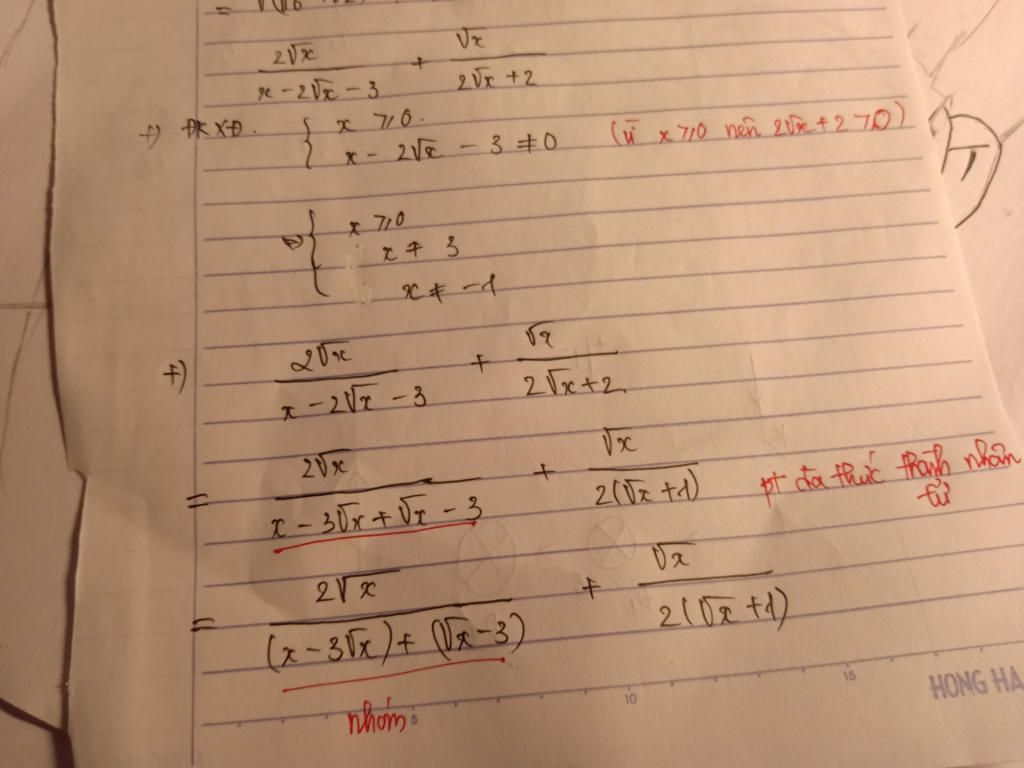 =
2√x / x - 2√x - 3 + √x / 2√x + 2
+) ĐKXĐ. { x ⩾ 0. x - 2√x - 3 ≠ 0 (vì x ⩾ 0 nên 2√x + 2 > 0)
⇔ { x ⩾ 0
x ≠ 3
x ≠ -1
+) 2√x / x - 2√x - 3 + √x / 2√x + 2
= 2√x / x - 3√x + √x - 3 + √x / 2(√x + 1) pt đa thức thành nhân tử
= 2√x / (x - 3√x) + (√x - 3) + √x / 2(√x + 1)
nhóm
5 10 15 HONG HA